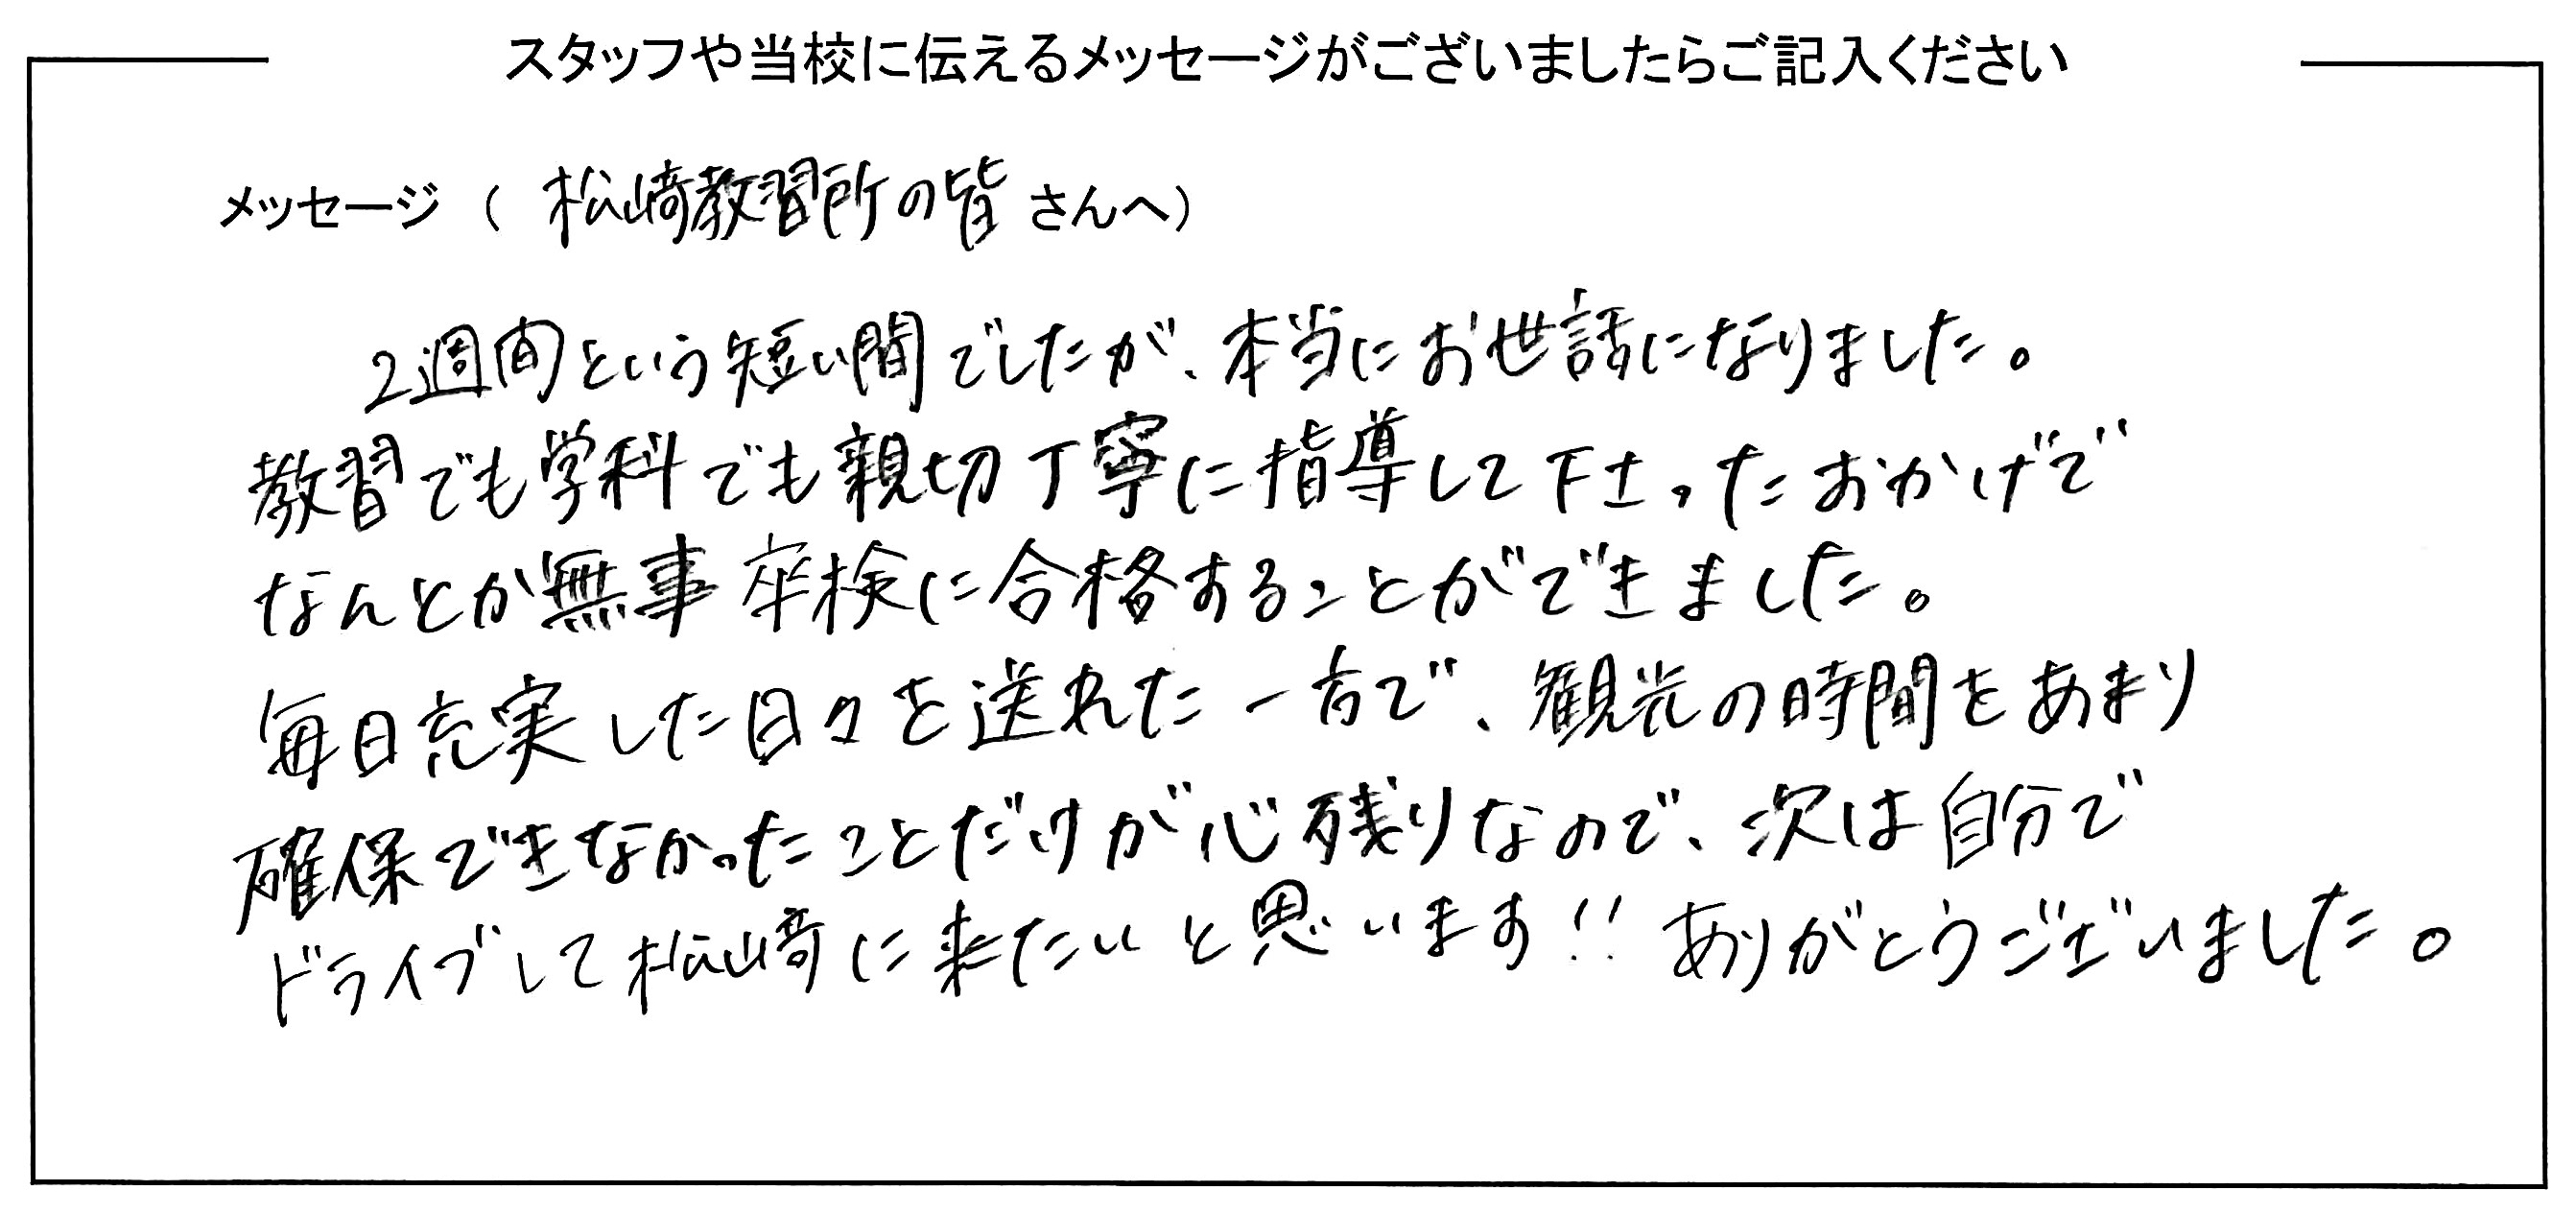 スタッフや当校に伝えるメッセージがございましたらご記入ください
メッセージ（ 松崎教習所の皆 さんへ）
2週間という短い間でしたが、本当にお世話になりました。
教習でも学科でも親切丁寧に指導して下さったおかげで
なんとか無事卒検に合格することができました。
毎日充実した日々を送れた一方で、観光の時間をあまり
確保できなかったことだけが心残りなので、次は自分で
ドライブして松崎に来たいと思います!! ありがとうございました。